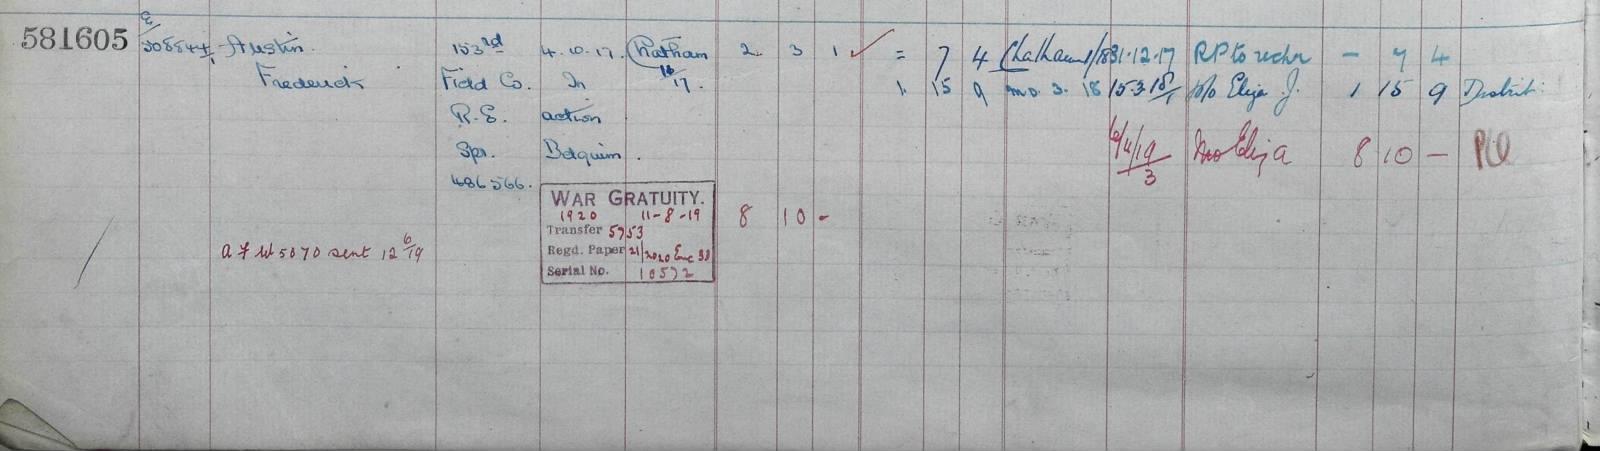 581605 E/308544/1 Austin 153rd 4.10.17. Chatham 2 3 1 ✓ = 7 4 Chatham 31.12.17 RP to rechr - 7 4
Frederick Field Co. In 17. 1. 15 9 mo. 3. 18 15.3.18/1 Eliza J. 1 15 9 Distrib:
R.E. action
Spr. Belgium. 19/3 Mo Eliza 8 10 -
486566.
WAR GRATUITY.
1920 11-8-19 8 10 -
Transfer 5753
Regd. Paper 21/2020
Serial No. 10572
sent 12 6/19